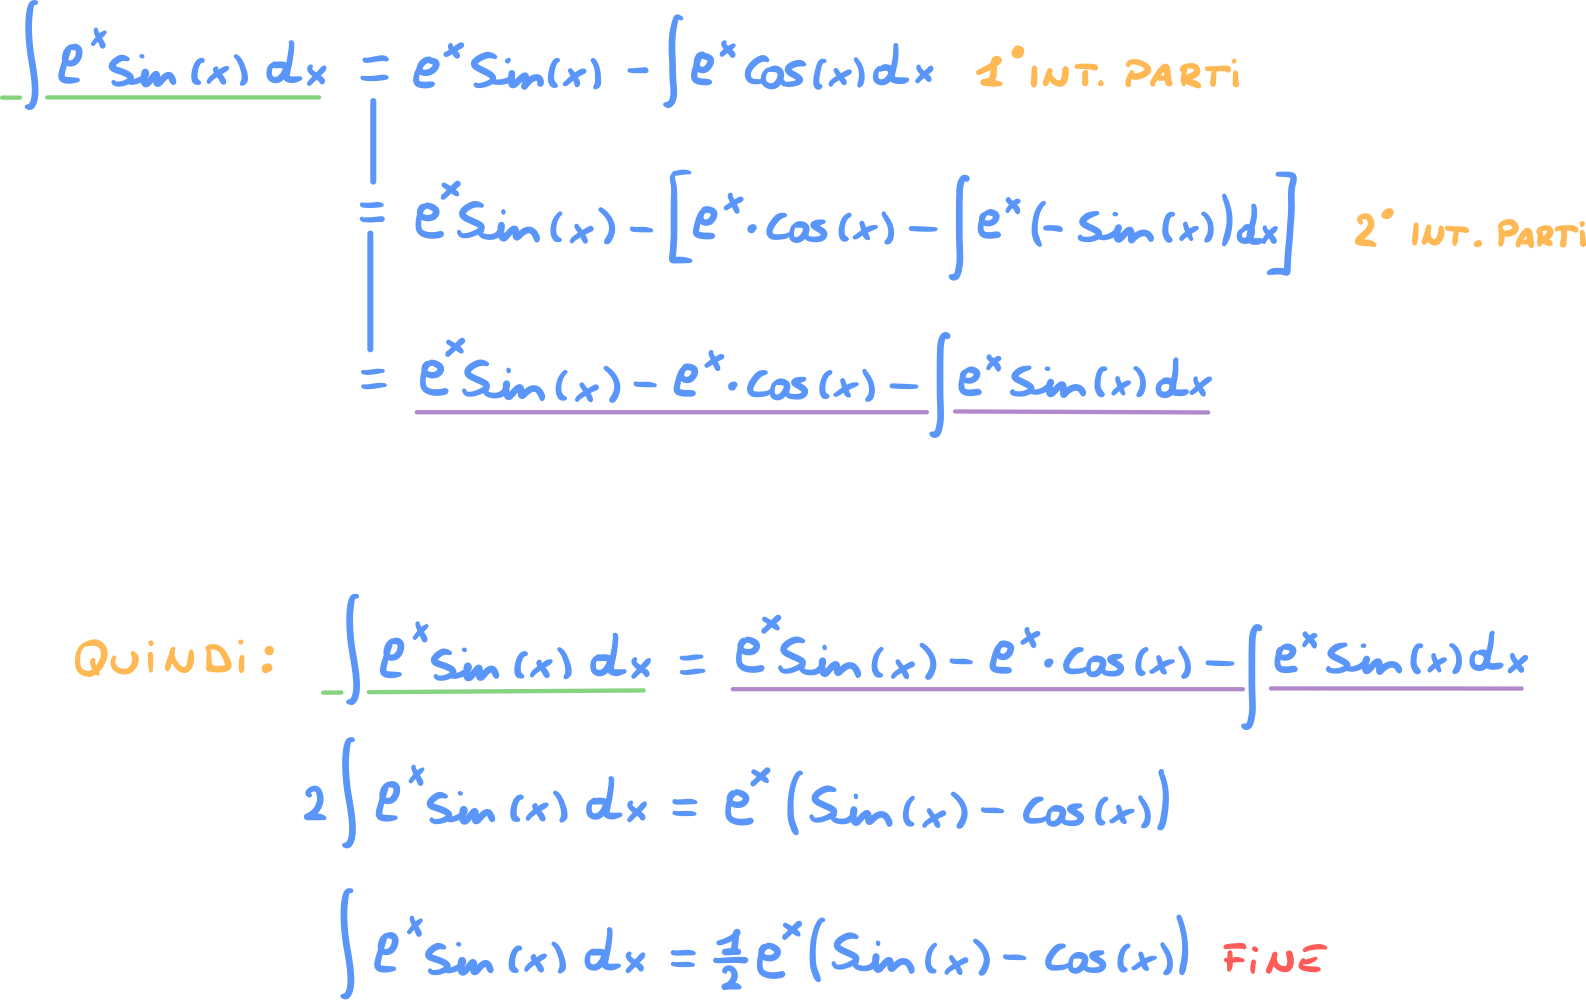 ∫ e^x sin(x) dx = e^x sin(x) - ∫ e^x cos(x) dx 1° INT. PARTI
= e^x sin(x) - [e^x · cos(x) - ∫ e^x (- sin(x)) dx] 2° INT. PARTI
= e^x sin(x) - e^x · cos(x) - ∫ e^x sin(x) dx
QUINDI: ∫ e^x sin(x) dx = e^x sin(x) - e^x · cos(x) - ∫ e^x sin(x) dx
2 ∫ e^x sin(x) dx = e^x (sin(x) - cos(x))
∫ e^x sin(x) dx = 1/2 e^x (sin(x) - cos(x)) FINE